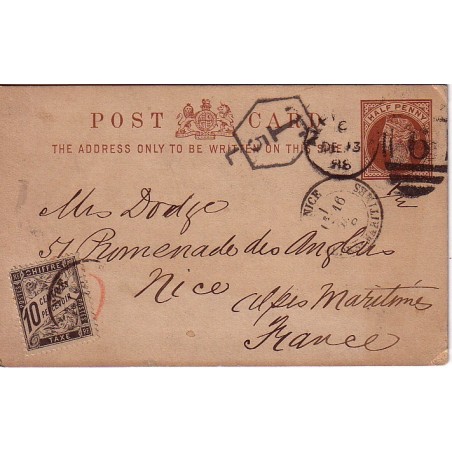 POST CARD
HALF PENNY
THE ADDRESS ONLY TO BE WRITTEN ON THIS SIDE
T
5
C
DE 13
88
NICE
16
ALPES MARITIMES
Mrs Dodge
51 Promenade des Anglais
Nice
Alpes Maritimes
France
CHIFFRE
10
CENTIMES
À PERCEVOIR
TAXE